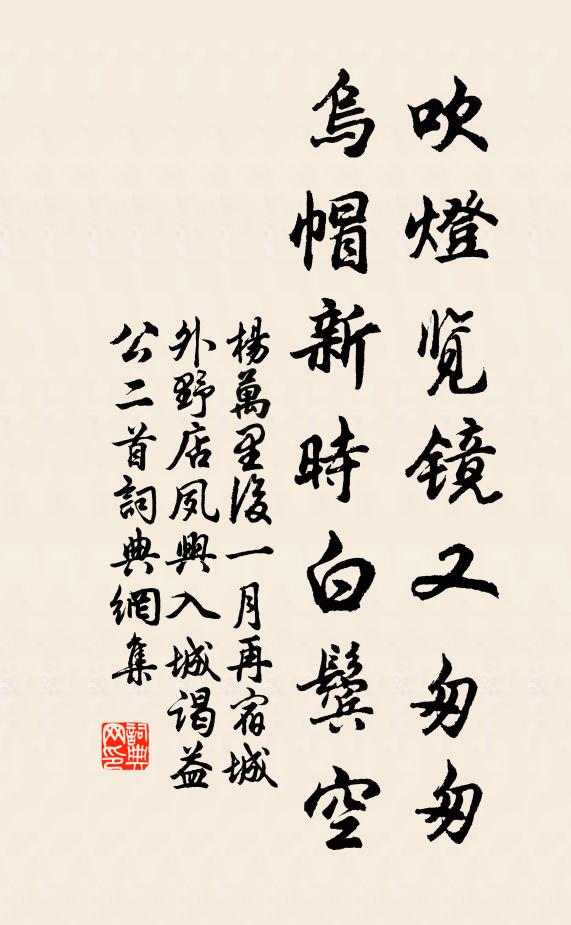 吹燈览镜又匆匆
烏帽新時白鬓空
楊萬里後一月再宿城
外野店夙興入城谒益
公二首詞典網集
詞典
网印